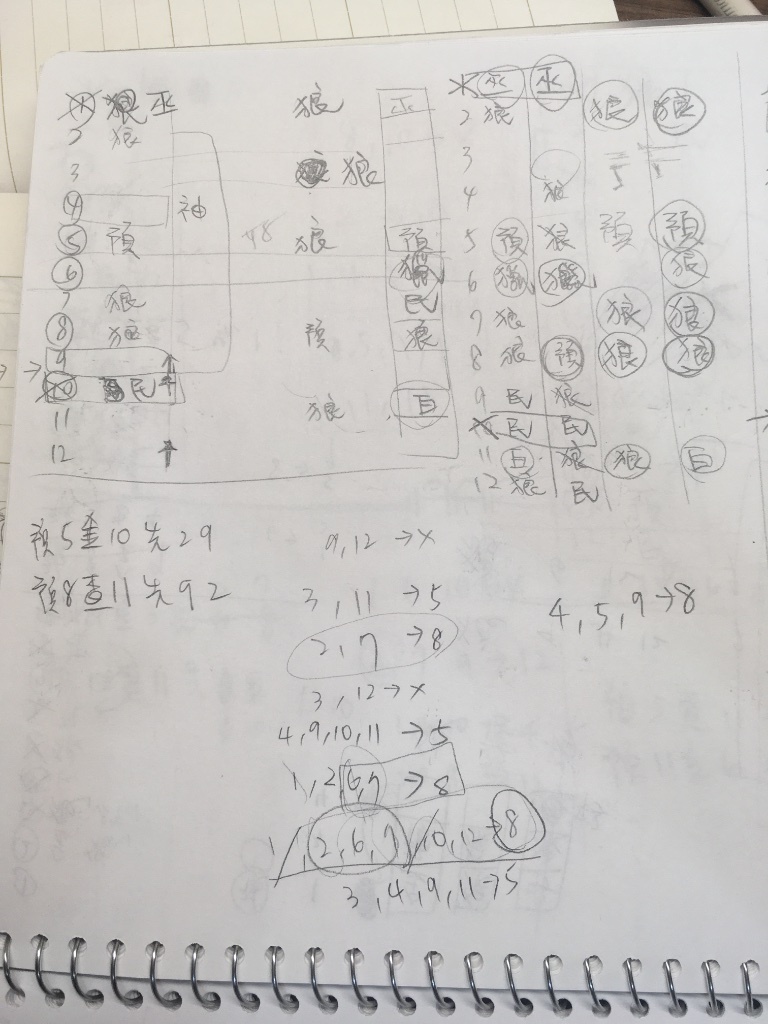 1 狼 巫 狼 巫
2 狼
3 狼
4 神
5 預 狼 預
6 獵
7 狼 民
8 狼 預 狼
9
10 民 狼 白
11
12
1 巫 巫
2 狼 狼 狼
3
4 狼
5 預 狼 預 預
6 獵 獵 狼
7 狼 狼 狼
8 狼 預 狼 狼
9 民 狼
10 民 民
11 白 狼 狼 白
12 狼 民
預5查10先29
預8查11先92
9,12→x
3,11→5
2,7→8
3,12→x
4,9,10,11→5
1,2,6,7→8
1,2,6,7,10,12→8
3,4,9,11→5
4,5,9→8